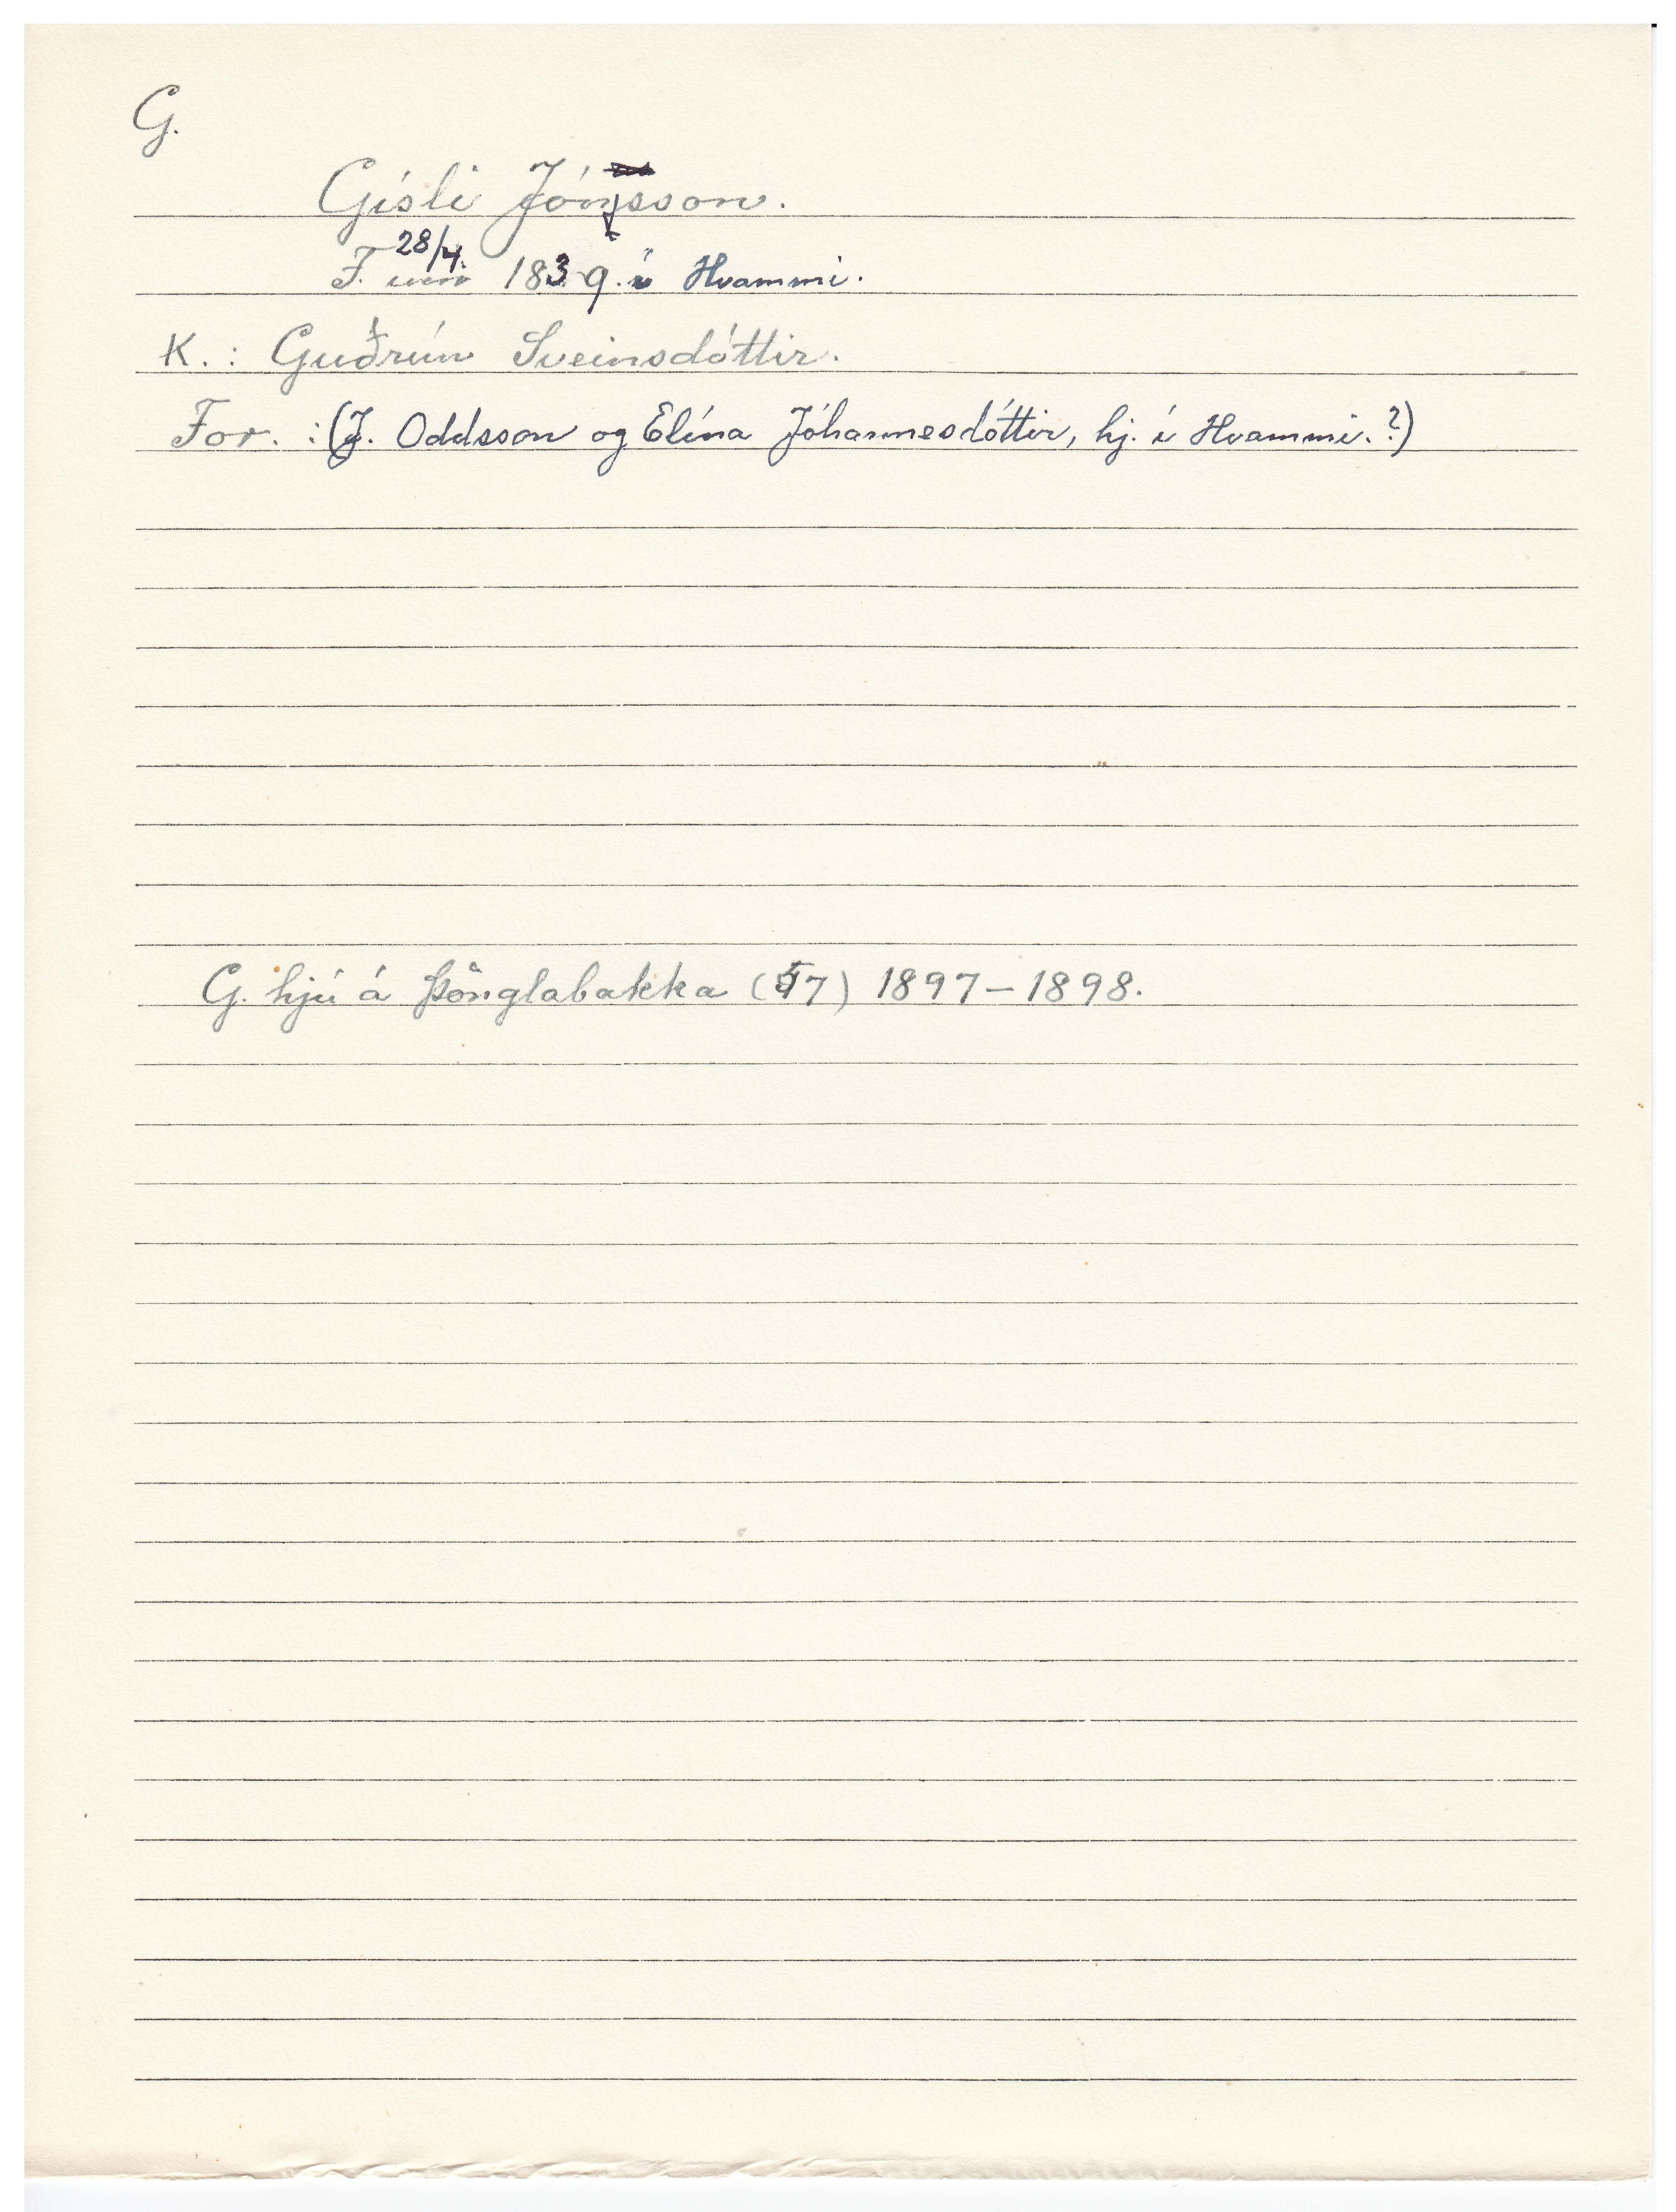 G.
Gísli Jónsson.
F. 28/4. 1839. í Hvammi.
K.: Guðrún Sveinsdóttir.
For.: (J. Oddsson og Elína Jóhannesdóttir, hj. í Hvammi.?)
G. hjú á Þönglabakka (57) 1897-1898.